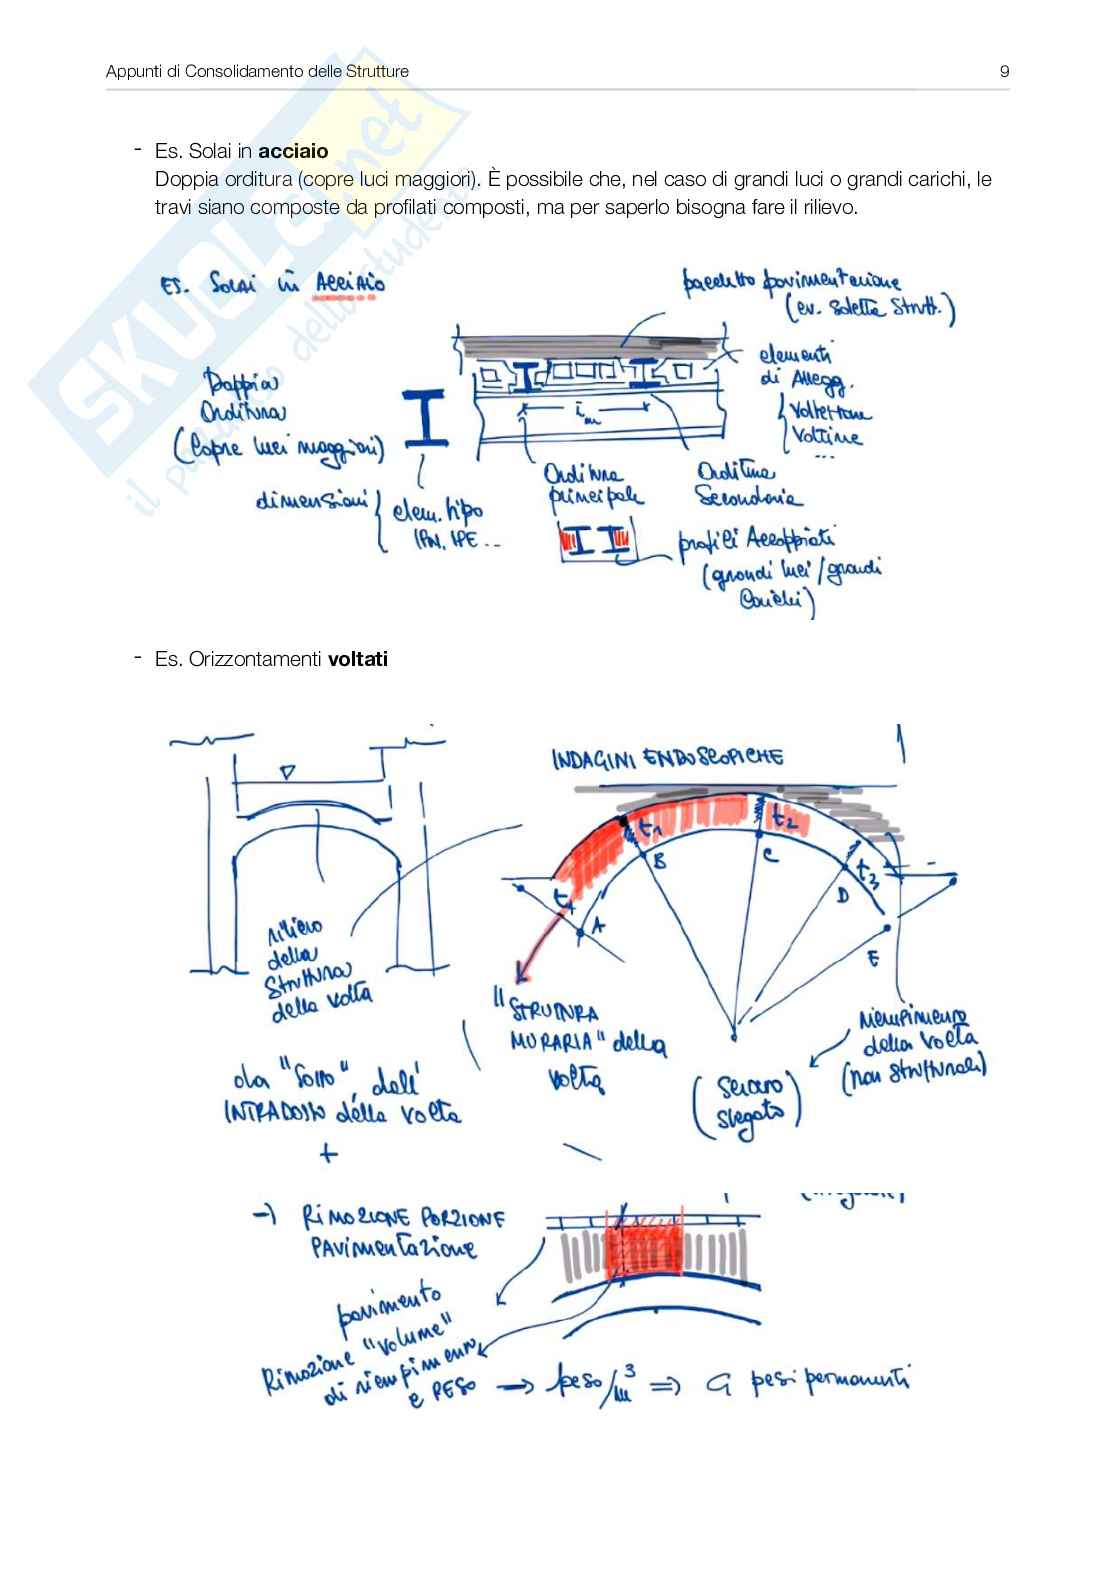 Appunti di Consolidamento delle Strutture 9
- Es. Solai in acciaio
Doppia orditura (copre luci maggiori). È possibile che, nel caso di grandi luci o grandi carichi, le
travi siano composte da profilati composti, ma per saperlo bisogna fare il rilievo.
SKUOLA.net
il paradiso dello studente
ES. SOLAI in ACCIAIO
pacchetto pavimentazione
(ev. soletta strutt.)
elementi
di Allegg.
Voltine
...
Doppia
Orditura
(Copre luci maggiori)
im
dimensioni
elem. tipo
IPN, IPE ...
Orditura
principale
Orditura
Secondaria
profili Accoppiati
(grandi luci/grandi
Carichi)
- Es. Orizzontamenti voltati
INDAGINI ENDOSCOPICHE
t1
t2
t3
t4
A
B
C
D
E
rilievo
della
struttura
della volta
"STRUTTURA
MURARIA" della
volta
riempimento
della volta
(non strutturale)
(
slegato)
da "sotto", dall'
INTRADOSSO della volta
+
→ RIMOZIONE PORZIONE
PAVIMENTAZIONE
pavimento
Rimozione "volume"
di riempimento
e PESO → peso/m³ ⇒ G pesi permanenti